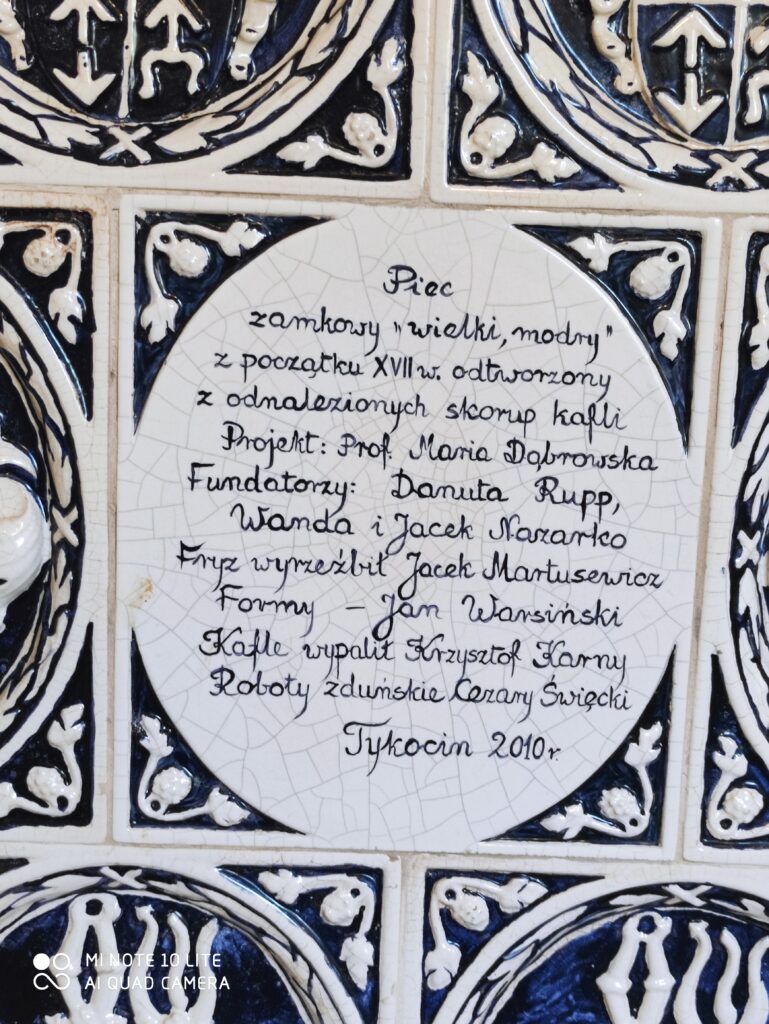 Piec
zamkowy "wielki, modry"
z początku XVII w. odtworzony
z odnalezionych skorup kafli
Projekt: Prof. Maria Dąbrowska
Fundatorzy: Danuta Rupp,
Wanda i Jacek Nazarko
Fryz wyrzeźbił Jacek Martusewicz
Formy – Jan Warsiński
Kafle wypalił Krzysztof Karny
Roboty zduńskie Cezary Święcki
Tykocin 2010 r.
MI NOTE 10 LITE
AI QUAD CAMERA